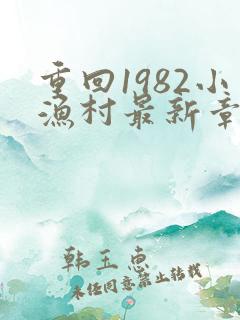 重回1982小
渔村最新章
韩玉惠
未经同意禁止转载